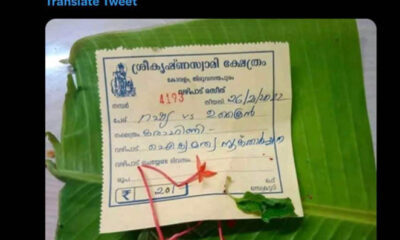 Translate Tweet
ശ്രീകൃഷ്ണസ്വാമി ക്ഷേത്രം
കോവളം, തിരുവനന്തപുരം
വഴിപാട് രസീത്
നമ്പർ 4193 തീയതി 26/2/2022
പേര് റഷ്യ vs ഉക്രൈൻ
നക്ഷത്രം
വഴിപാട് ഐക്യമത്യ
വഴിപാട് ദിവസം
രൂപ
₹ 20/-